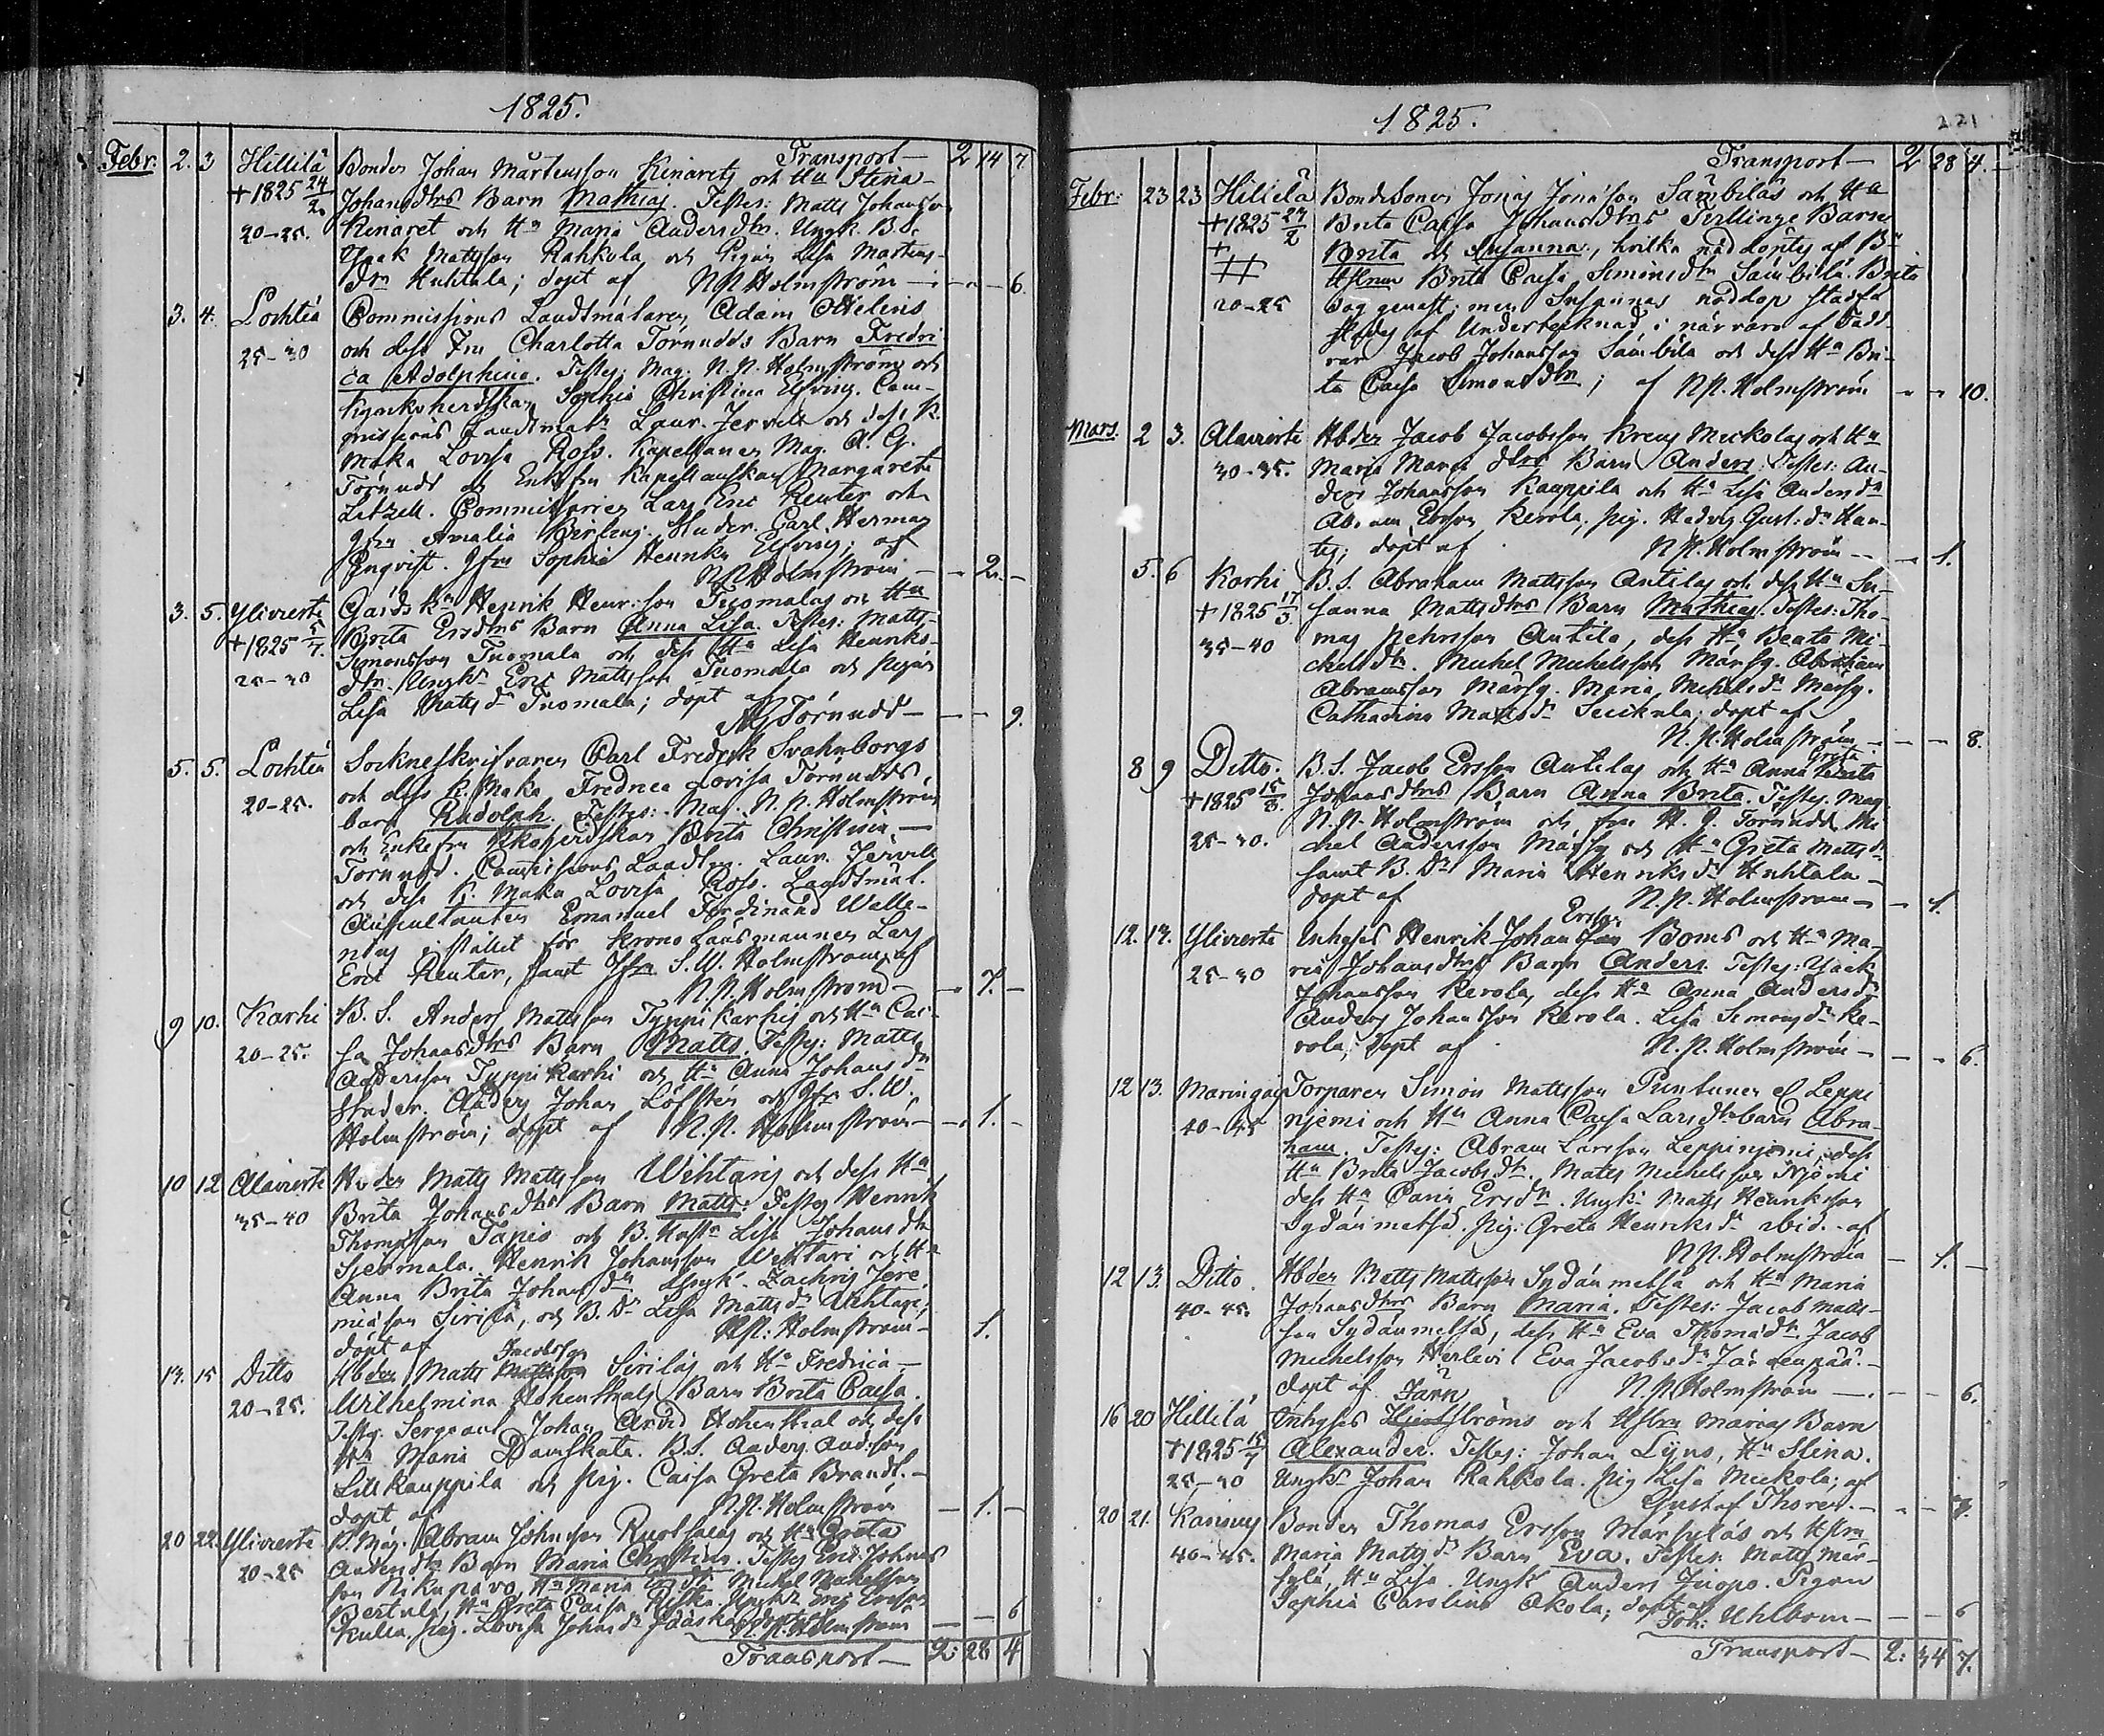 1825.
Transport — 2 14 7.
Febr. 2. 3 Hillilä Bonden Johan Mårtensson Kinarets och Hu Stina
+ 1825 24/2 Johansdtrs Barn Mathias. Testes: Matts Johansson
20-25. Kinaret och Hu Maria Andersdtr. Ungk. B.S.
Isaak Mattsson Rahkola och Pigan Lisa Mårtens-
dtr Huhtala; döpt af N.N. Holmström — 6.
3. 4. Lochteå Commissions Landtmätaren Adam Othelins
25-30 och dess Fru Charlotta Törnudds Barn Fredri
ca Adolphina. Testes: Mag. N.N. Holmström och
Kyrkoherdskan Sophia Christina Elfving. Com-
missions Landtmätn Laur. Jervell och dess K.
Maka Lovisa Ross. Kapellanen Mag. A. G.
Törnudd och Enkefru Kapellanskan Margareta
Litzell. Commissarien Lars Eric Reuter och
Jfru Amalia . Studer. Carl Herman
Enqvist. Jfru Sophia Henrika Elfving; af
N.N. Holmström — 2. —
3. 5. Ylivierte Gårds kn Henrik Henr:son Tuomalas och Hu
+ 1825 5/7. Brita Ersdtrs Barn Anna Lisa. Testes: Matts
25-30 Simonsson Tuomala och dess Hu Lisa Henriks-
dtr. Ungkn Eric Mattsson Tuomala och pigan
Lisa Mattsdr Tuomala; döpt af
AG Törnudd — 9.
5. 5. Lochteå Sockneskrifvaren Carl Fredrik Svahnborgs
20-25. och dess K. Maka Fredrica Lovisa Törnudds
barn Rudolph. Testes: Mag. N.N. Holmström
och Enkefru Brita Christina —
Törnudd. Commissions Landtm. Laur. Jervell
och dess K. Maka Lovisa Ross. Landtmät.
Auscultanten Emanuel Ferdinand Walle-
nius i stället för Krono Länsmannen Lars
Eric Reuter, samt Jfru S.W. Holmström, af
N.N. Holmström — 7. —
9 10. Karhi B.S. Anders Mattsson Typpi karhis och Hu Cai-
20-25. sa Johansdtrs Barn Matts. Testes: Matts
Andersson Typpikarhi och Hu Anna Johansdr
Studer. Anders Johan Löfsten och Jfr S.W.
Holmström; döpt af N.N. Holmström — 1. —
10 12 Alavierte Hbden Matts Mattsson Wihtaris och dess Hu
35-40 Brita Johansdtrs Barn Matts: Testes Henrik
Thomsson Tapio och B. Hustr Lisa Johansdtr
Sjermala. Henrik Johansson Wihtari och Hu
Anna Brita Johansdr Ungk. Zachris Jere-
miasson Sirilä, och B.Dr Lisa Mattsdr Wihtari;
döpt af N.N. Holmström — 1.
Jacobsson
14. 15 Ditto Hbden Matts Mattsson Sirilas och Hu Fredrica —
20-25. Wilhelmina Hohenthals Barn Brita Caisa.
Testes. Sergeant Johan Arvid Hohenthal och dess
Hu Maria Damskata. B.S. Anders And:son
Lillkauppila och pig. Caisa Greta Brandt. —
döpt af N.N. Holmström — 1. —
20 22. Ylivierte B.Måg. Abram Johnsson och Hu Greta
20-25 Andersdtr Barn Maria Christina. Testes Eric Johans
son Nikupavo, Hu Maria Michel Michelsson
Bertula, Hu Greta Caisa Ungkn Eric Ersson
pig. Lovisa Johansdr döpt af N.N. Holmström — 6
Transport — 2: 28 4

1825.
221
Transport — 2 28 4. —
Febr: 23 23 Hillilä BondeSonen Jonas Jonasson Sämbiläs och Hu
+ 1825 27/2 Brita Caisa Johansdtrs Tvillinge Barn
+ Brita och Susanna, hvilka nöddöptes af Bn
++ Hustrun Brita Caisa Simonsdtr Sämbilä. Brita
20-25 dog genast; men Susannas nöddop stadfä
stades af Undertecknad i närvaro af Fadd-
rar Jacob Johansson Sämbilä och dess Hu Bri-
ta Caisa Simonsdtr; af N.N. Holmström — 10.
Mars. 2 3. Alavierte Hbden Jacob Jacobsson Kreus Mickolas och Hu
30-35. Maria Maria dtrs Barn Anders. Testes: An-
ders Johansson Kauppila och Hu Lisa Andersdr
Abram Ersson Kerola, pig. Hedvig Gust:dr Han-
; döpt af N.N. Holmström — 1.
5. 6 Karhi B.S. Abraham Mattsson Antilas och dess Hu Su-
+ 1825 17/3 sanna Mattsdtrs Barn Mathias. Testes: Tho-
35-40 mas Pehrsson Antila, dess Hu Beata Mi-
chelsdtr. Michel Michelsson Märsy. Abraham
Abramsson Märsy. Maria Michelsdr Märsy.
Catharina Mattsdr ; döpt af
N.N. Holmström — 8.
Greta
8 9 Ditto. B.S. Jacob Ersson Antilas och Hu Anna Brita
+ 1825 15/3. Johansdtrs Barn Anna Brita. Testes. Mag
25-30. N.N. Holmström och fru H. J. Törnudd, Mi
chel Andersson Märsy och Hu Greta Mattsdr
samt B.Dr Maria Henriksdr Huhtala —
döpt af N.N. Holmström — 1.
Ersson
12. 14. Ylivierte Inhyses Henrik Johansson Boms och Hu Ma-
25-30 ria Johansdtrs Barn Anders. Testes: Isack
Johansson Kerola, dess Hu Anna Andersdr
Anders Johansson Kerola. Lisa Simonsdr Ke-
rola, döpt af N.N. Holmström — 6.
12 13. Maringais Torparen Simon Mattsson Puntunen el Leppi
40-45 njemi och Hu Anna Caisa Larsdtr barn Abra-
ham. Testes: Abram Larsson Leppinjemi, dess
Hu Brita Jacobsdtr. Matts Michelsson Njemi
dess Hu Caisa Ersdr. Ungk: Matts Henriksson
Sydänmetsä. pig: Greta Henriksdr ibid. - af
N.N. Holmström — 1. —
12 13. Ditto. Hbden Matts Mattsson Sydänmetsä och Hu Maria
40-45. Johansdtrs Barn Maria. Testes: Jacob Matts-
son Sydänmetsä, dess Hu Eva Thomasdtr Jacob
Michelsson Herlevi Eva Jacobsdr Järvenpää. —
döpt af N.N. Holmström — 6.
Järn
16 20 Hillilä Inhyses Hjertströms och Hustru Marias Barn
+ 1825 15/7 Alexander. Testes: Johan Lyns, Hu Stina.
25-30 Ungkn Johan Rahkola. pig Lisa Mickola; af
Gustaf Thoren. — 7.
20 21. Bonden Thomas Ersson Märsyläs och Hustru
40-45. Maria Mattsdr Barn Eva. Testes: Matts Mär-
sylä, Hu Lisa. Ungkn Anders Juopo. Pigan
Sophia Carolina Akola; döpt af
Joh: Uhlbom — 6
Transport — 2: 34 7.